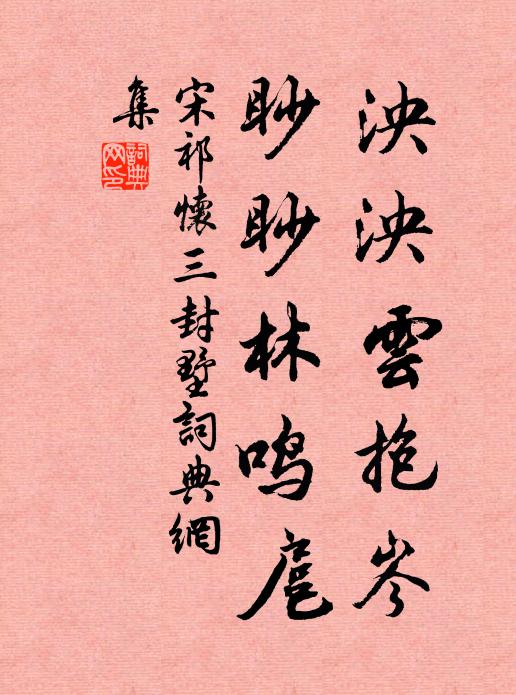 泱泱雲抱岑
眇眇林鳴扈
宋祁懷三封墅詞典網
集
詞典
网印